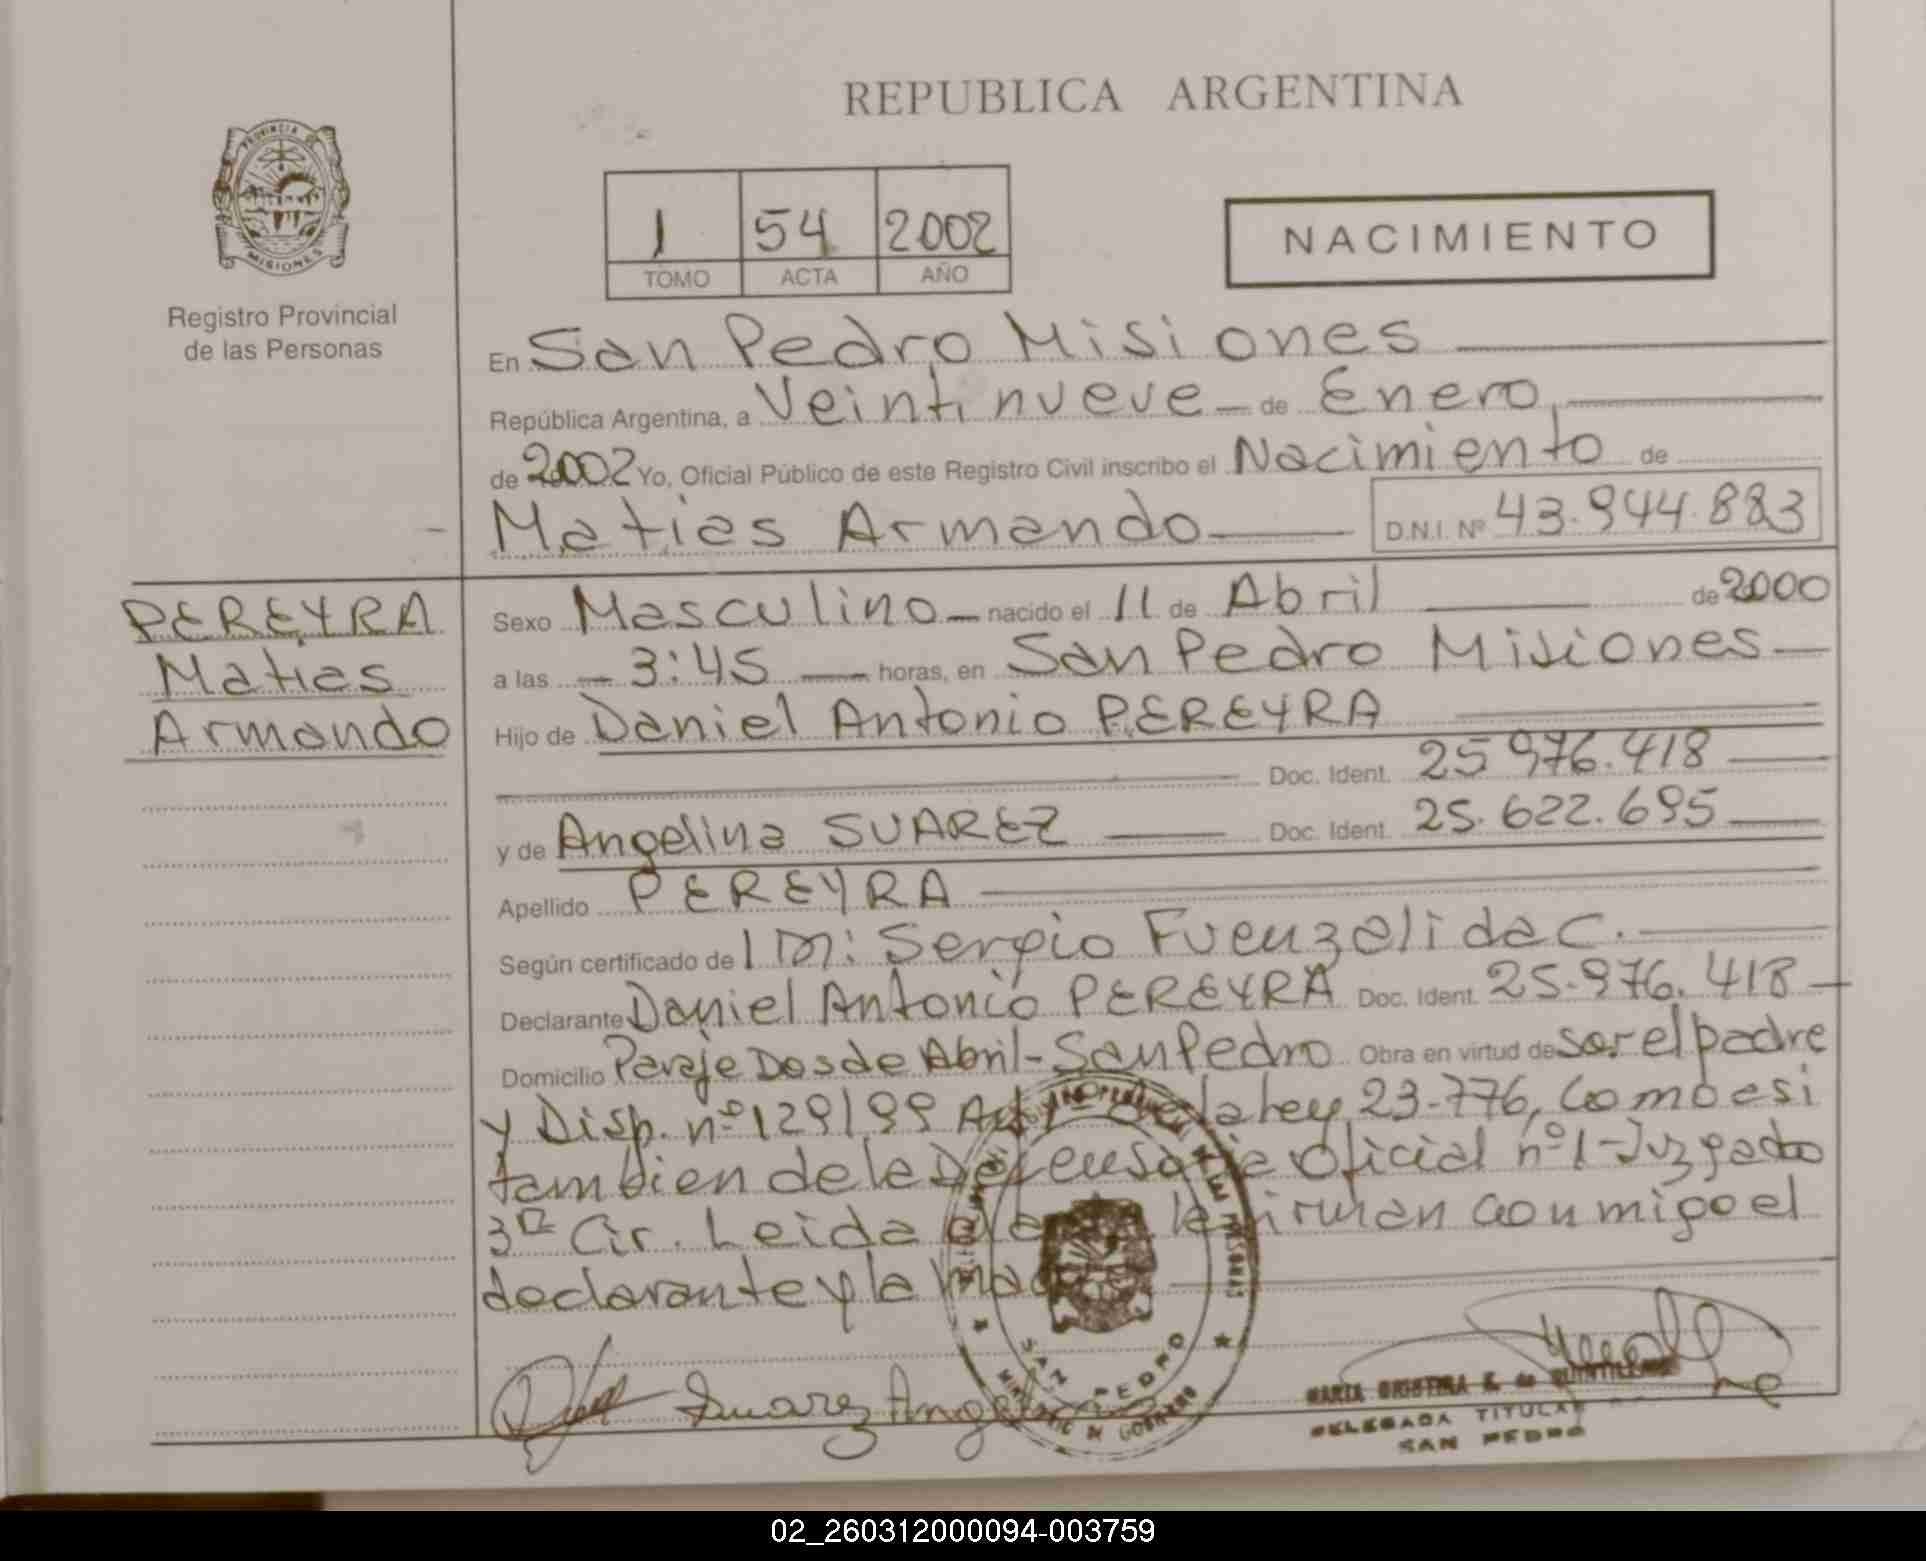 REPUBLICA ARGENTINA
PROVINCIA DE
MISIONES
Registro Provincial
de las Personas
1 54 2002
TOMO ACTA AÑO
NACIMIENTO
En San Pedro Misiones
República Argentina, a Veintinueve de Enero
de 2002 Yo, Oficial Público de este Registro Civil inscribo el Nacimiento de
Matias Armando D.N.I. Nº 43.944.883
PEREYRA
Matias
Armando
Sexo Masculino nacido el 11 de Abril de 2000
a las 3:45 horas, en San Pedro Misiones
Hijo de Daniel Antonio PEREYRA
Doc. Ident. 25 976.418
y de Angelina SUAREZ Doc. Ident. 25.622.695
Apellido PEREYRA
Según certificado de Sergio Fuenzalida C.
Declarante Daniel Antonio PEREYRA Doc. Ident. 25.976.418
Domicilio Paraje Dos de Abril - San Pedro Obra en virtud de ser el padre
y Disp. nº 129/99 Art de la ley 23.776, como asi
tambien de la Defensoria Oficial nº 1 - Juzgado
3ra Cir. Leida el acta la firman conmigo el
declarante y la madre
Suarez Angelina
SAN PEDRO
MINISTERIO DE GOBIERNO
MARIA CRISTINA K. de
DELEGADA TITULAR
SAN PEDRO
02_260312000094-003759